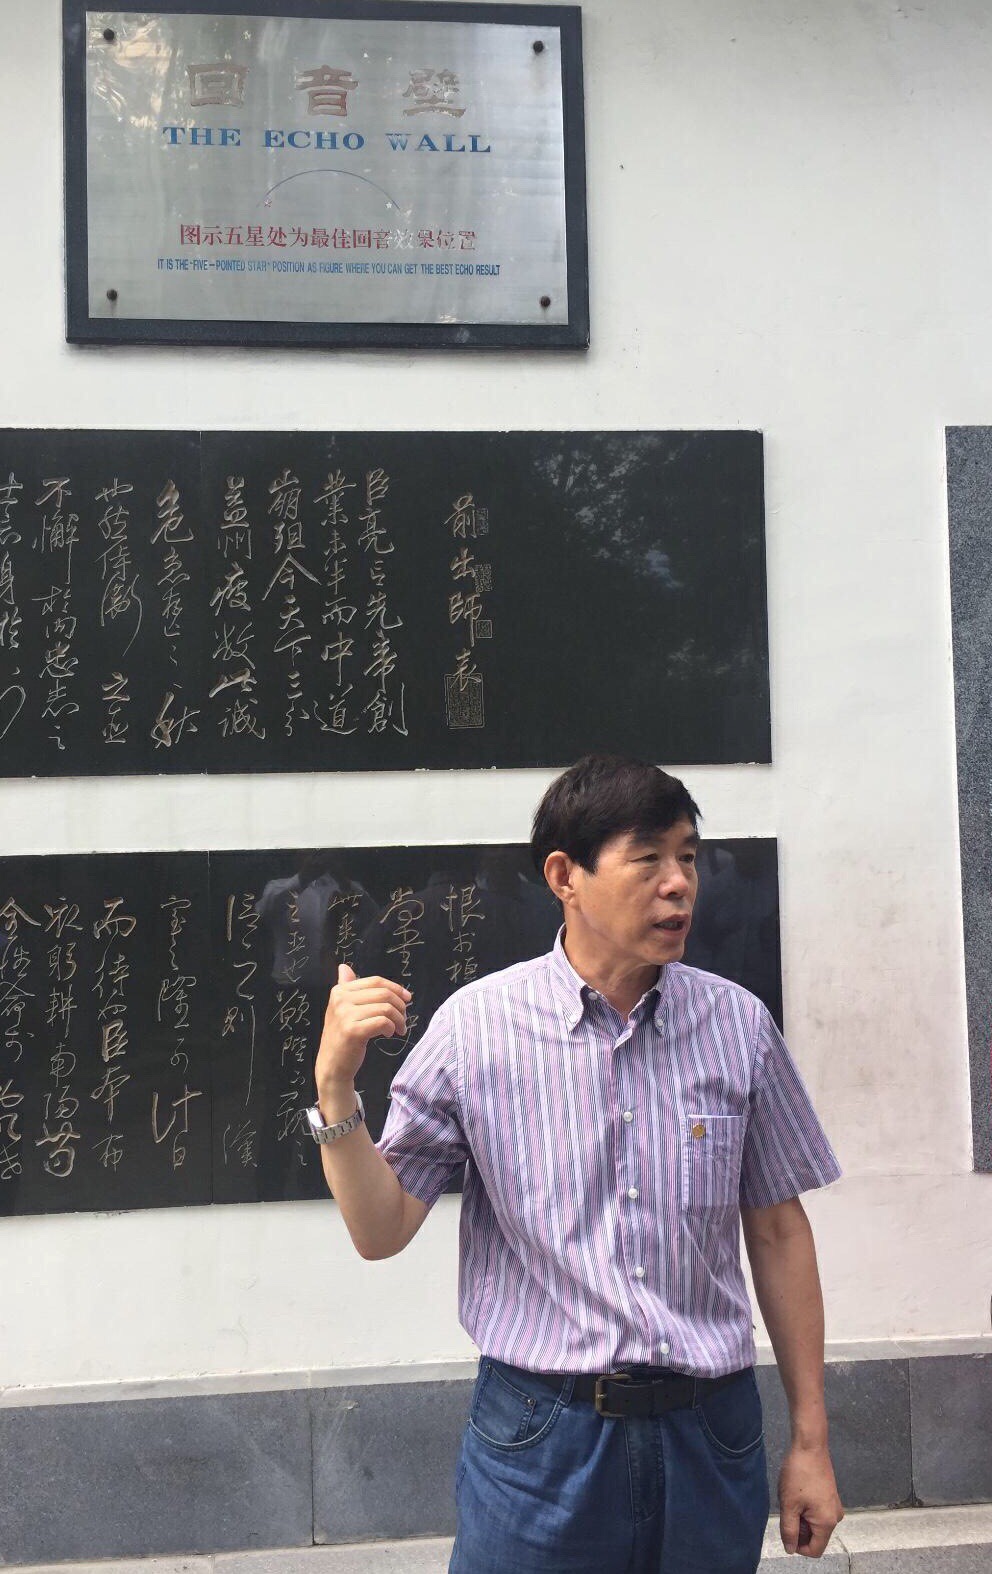 回音壁
THE ECHO WALL
图示五星处为最佳回音效果位置
IT IS THE "FIVE-POINTED STAR" POSITION AS FIGURE WHERE YOU CAN GET THE BEST ECHO RESULT
前出師表
臣亮言先帝創
業未半而中道
崩殂今天下三分
益州疲敝此誠
危急存亡之秋
也然侍衛之臣
不懈於內忠志之
士忘身於
恨於桓
也願陛下親之
信之則漢
室之隆可計日
而待也臣本布
衣躬耕南陽苟
全性命於